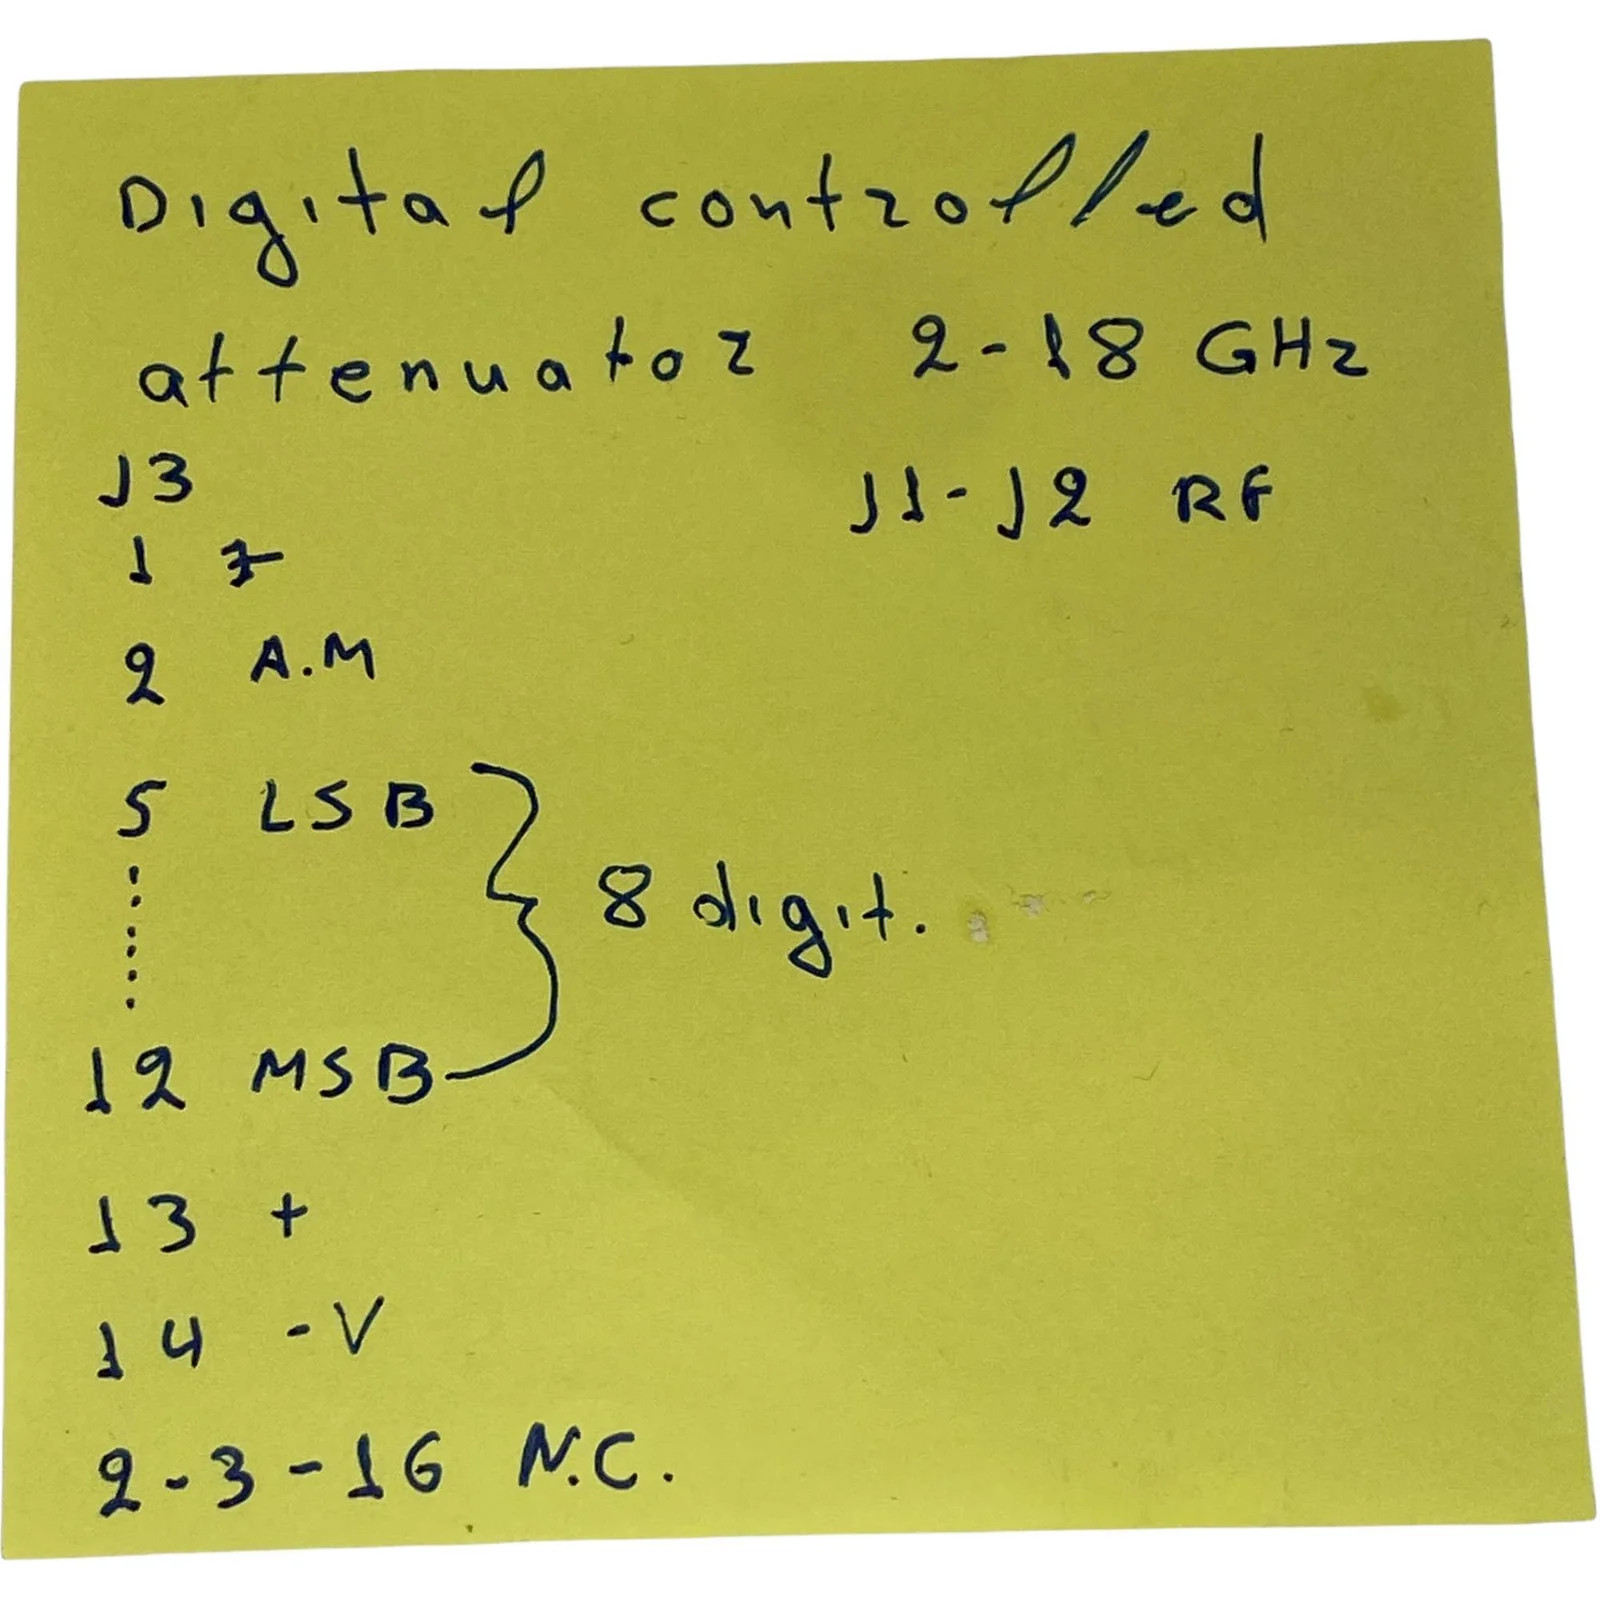 Digital controlled
attenuator 2-18 GHz
J3 J1-J2 RF
1
2 A.M
5 LSB
8 digit.
12 MSB
13 +
14 -V
2-3-16 N.C.